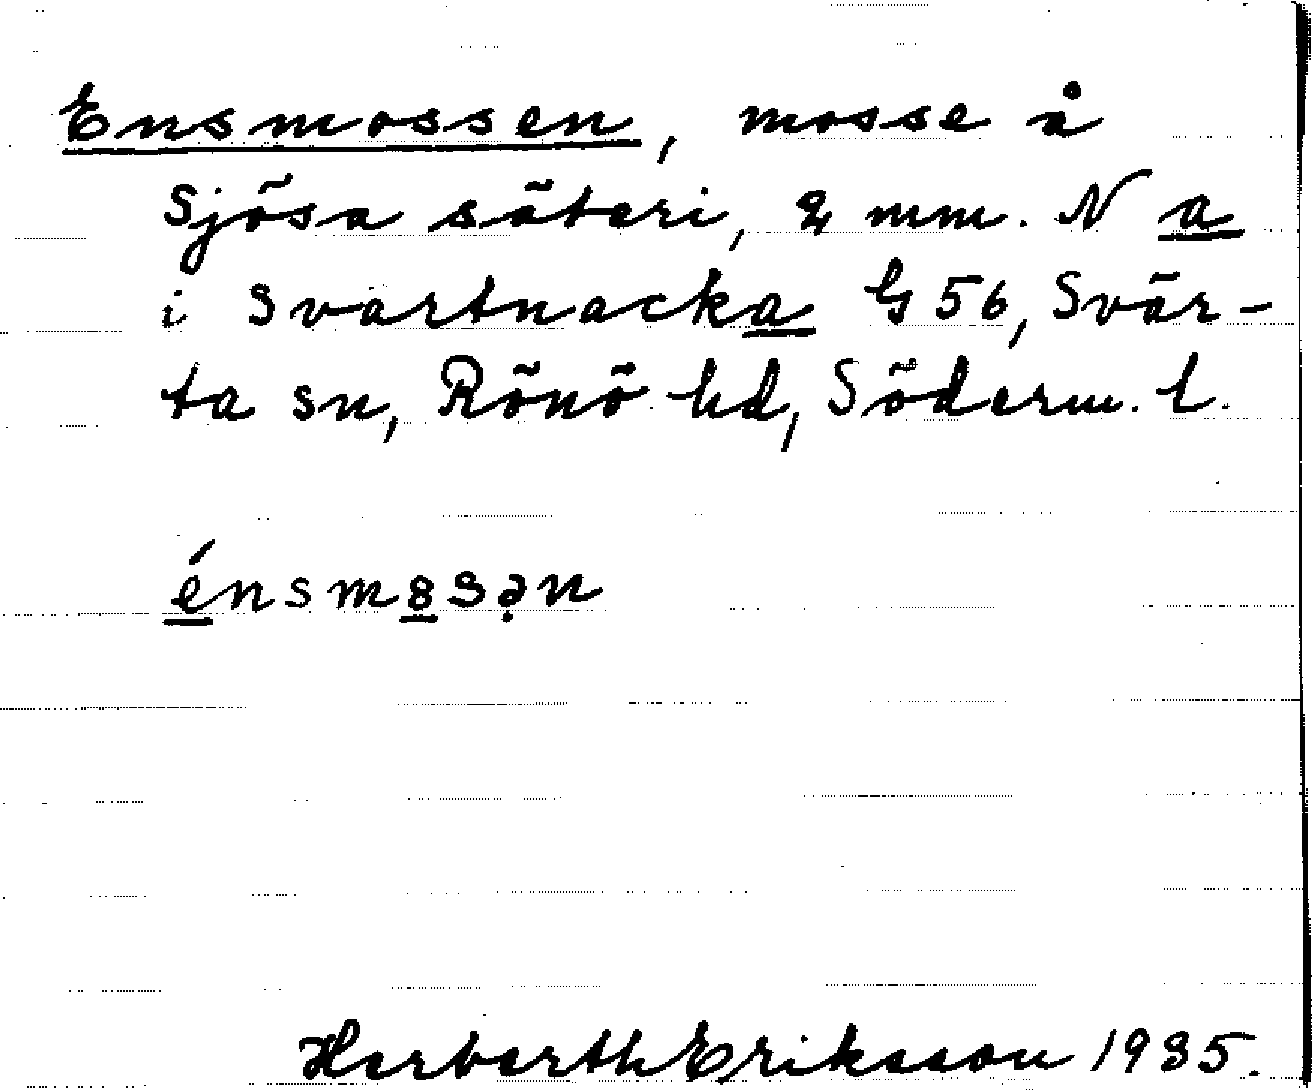 Ensmossen, mosse å
Sjösa säteri, 2 mm. N a
i Svartnacka G 56, Svär-
ta sn, Rönö hd, Söderm. l.
énsm8sən
Herberth Eriksson 1935.